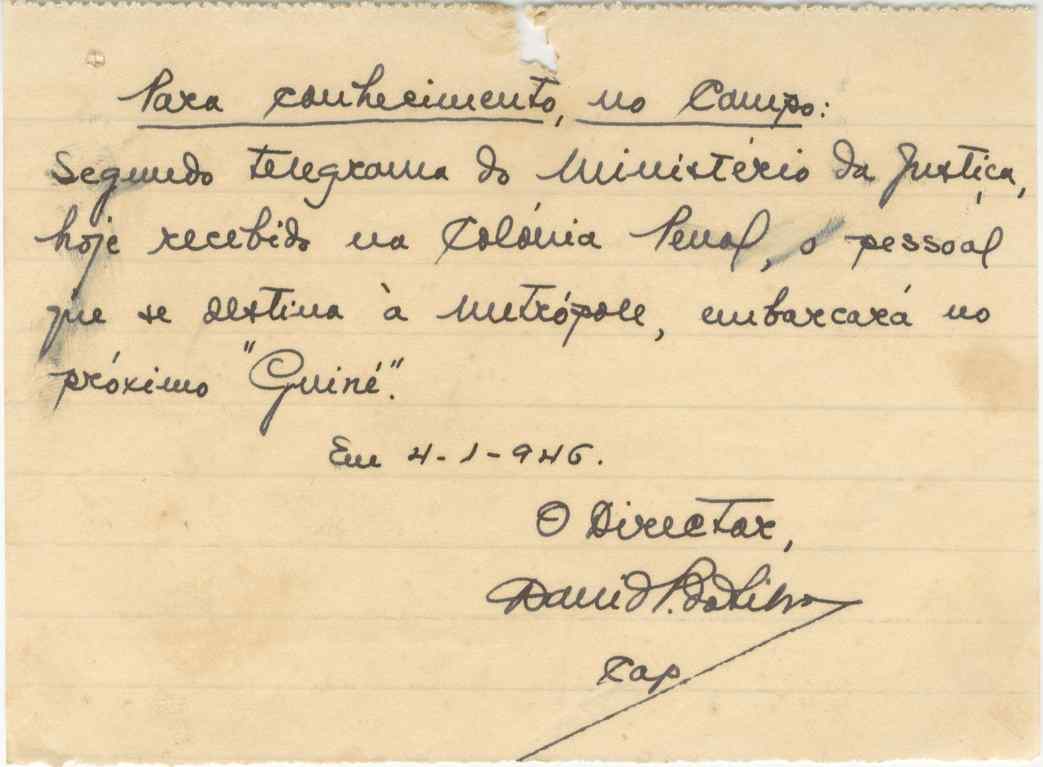 Para conhecimento, no Campo:
Segundo telegrama do Ministério da Justiça,
hoje recebido na Colónia Penal, o pessoal
que se destina à Metrópole, embarcará no
próximo "Guiné".
Em 4-1-946.
O Director,
David P. da Silva
Cap.